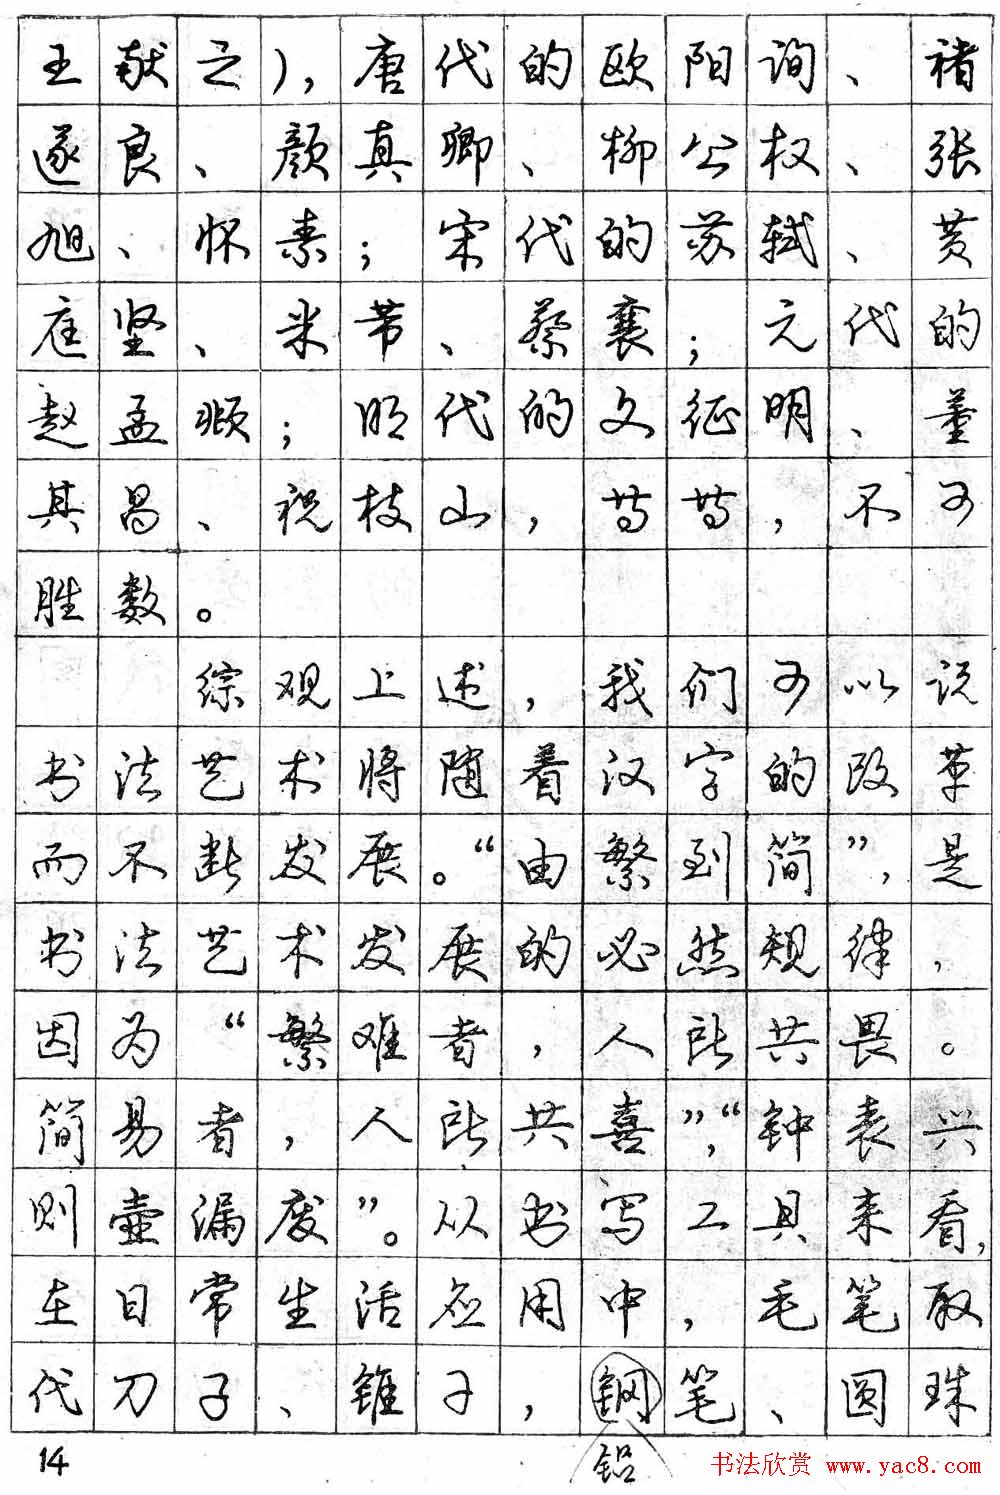 王献之),唐代的欧阳询、褚
遂良、颜真卿、柳公权、张
旭、怀素;宋代的苏轼、黄
庭坚、米芾、蔡襄;元代的
赵孟頫;明代的文征明、董
其昌、祝枝山,等等,不可
胜数。
综观上述,我们可以说
书法艺术将随着汉字的改革
而不断发展。“由繁到简”,是
书法艺术发展的必然规律,
因为“繁难者,人所共畏。
简易者,人所共喜”,“钟表兴
则壶漏废”。从书写工具来看,
在日常生活应用中,毛笔取
代刀子、锥子,钢笔、圆珠
铅
14
书法欣赏 www.yac8.com